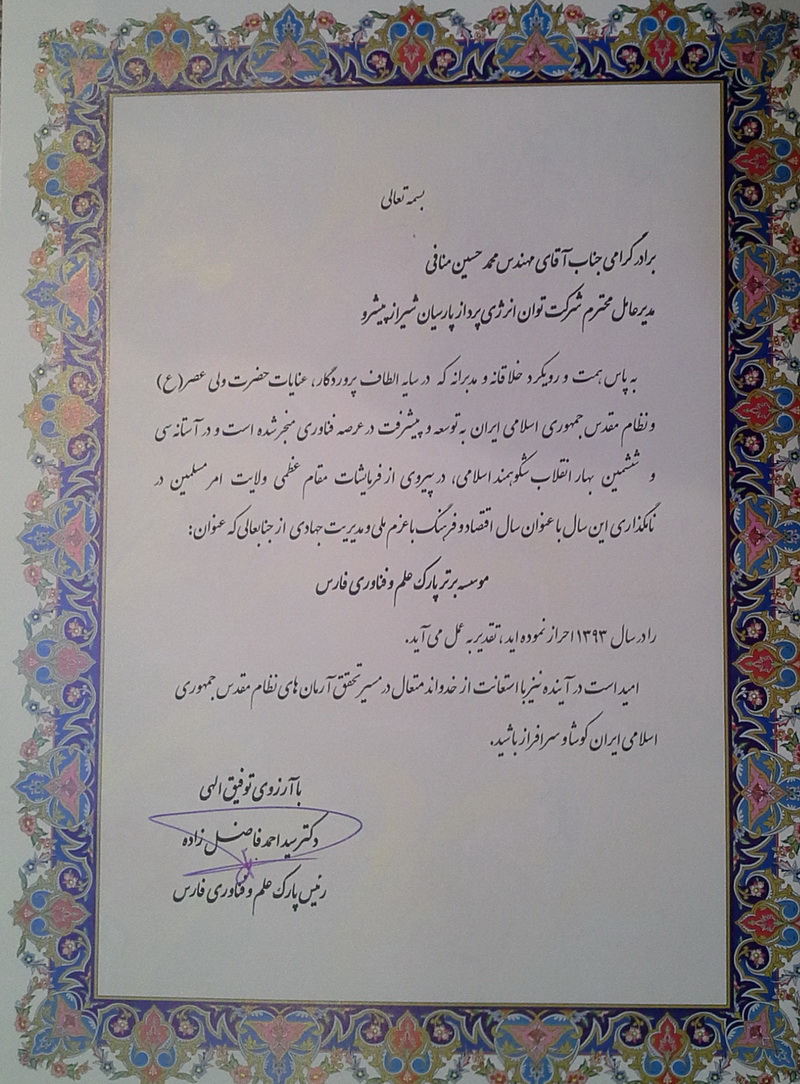 بسمه تعالی
برادر گرامی جناب آقای مهندس محمد حسین منافی
مدیرعامل محترم شرکت توان انرژی پرداز پارسیان شیراز پیشرو
به پاس همت و رویکرد خلاقانه و مدبرانه که در سایه الطاف پروردگار، عنایات حضرت ولی عصر(ع)
و نظام مقدس جمهوری اسلامی ایران به توسعه و پیشرفت در عرصه فناوری منجر شده است و در آستانه سی
و ششمین بهار انقلاب شکوهمند اسلامی، در پیروی از فرمایشات مقام عظمی ولایت امر مسلمین در
نامگذاری این سال با عنوان سال اقتصاد و فرهنگ با عزم ملی و مدیریت جهادی از جنابعالی که عنوان:
موسسه برتر پارک علم و فناوری فارس
را در سال ۱۳۹۳ احراز نموده اید، تقدیر به عمل می آید.
امید است در آینده نیز با استعانت از خداوند متعال در مسیر تحقق آرمان های نظام مقدس جمهوری
اسلامی ایران کوشا و سرافراز باشید.
با آرزوی توفیق الهی
دکتر سید احمد فاضل زاده
رئیس پارک علم و فناوری فارس